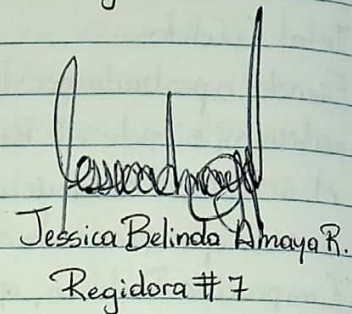 Jessica Belinda Amaya R.
Regidora # 7